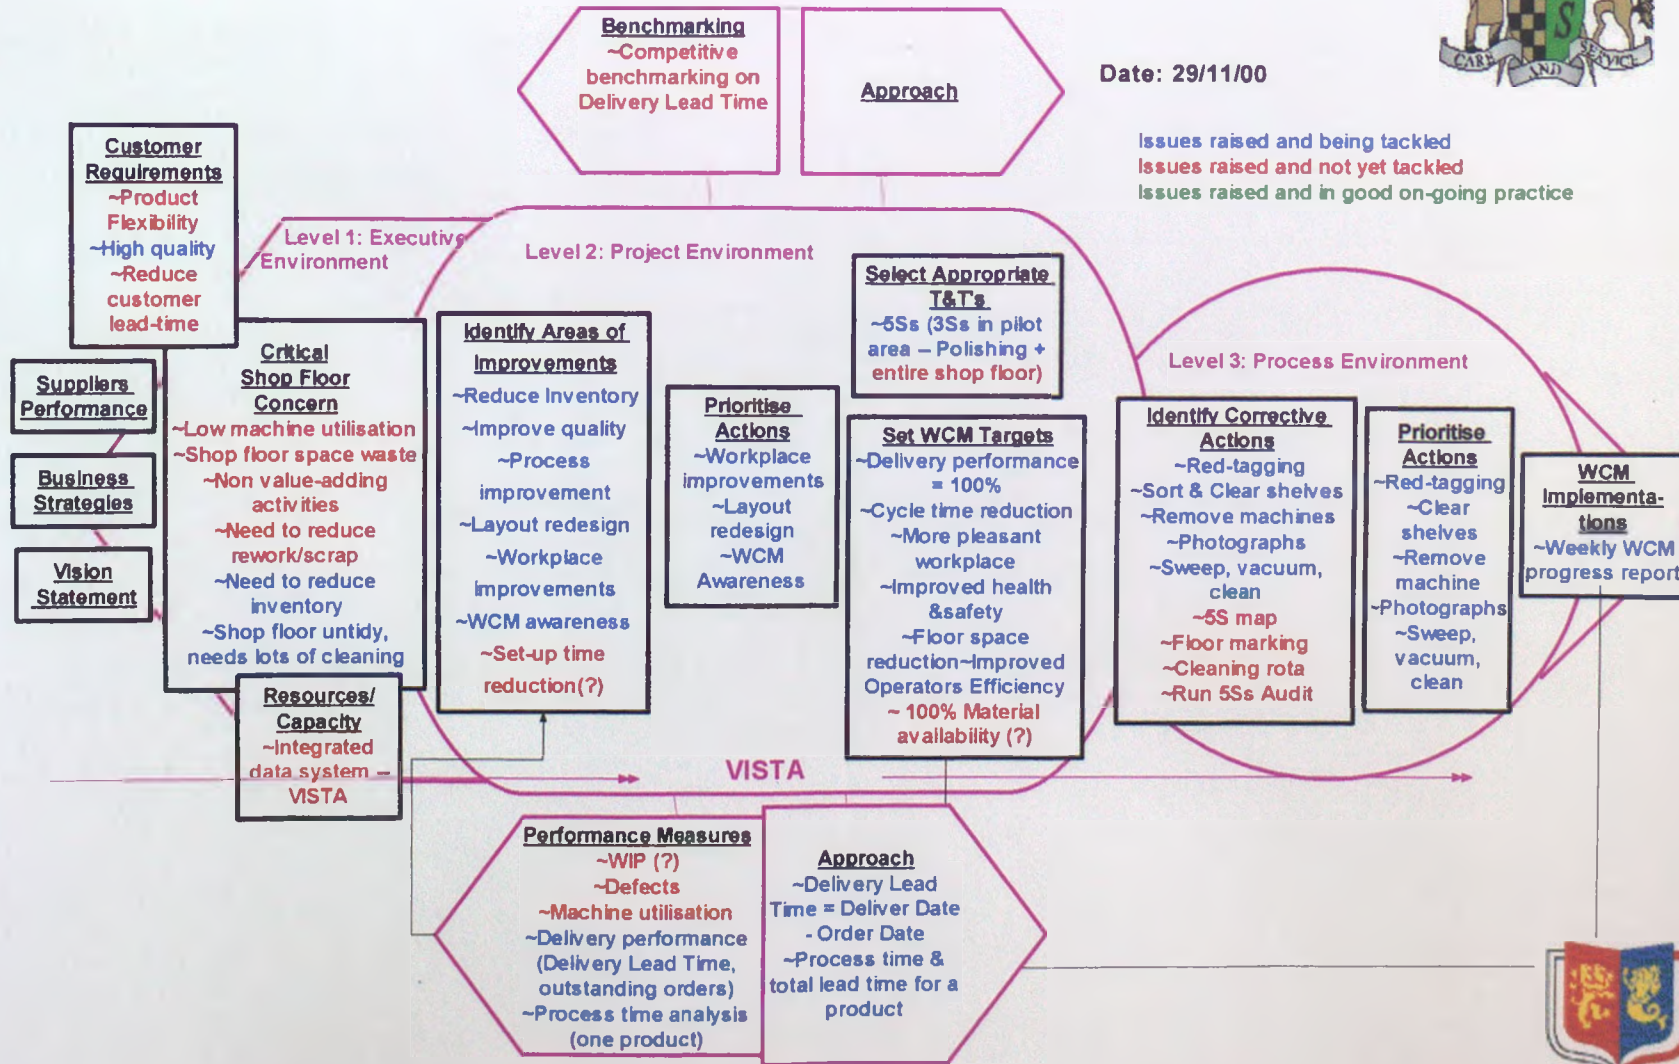 Benchmarking
~Competitive
benchmarking on
Delivery Lead Time
Approach
Date: 29/11/00
S
CARE AND SERVICE
Issues raised and being tackled
Issues raised and not yet tackled
Issues raised and in good on-going practice
Customer
Requirements
~Product
Flexibility
~High quality
~Reduce
customer
lead-time
Level 1: Executive
Environment
Level 2: Project Environment
Level 3: Process Environment
Suppliers
Performance
Business
Strategies
Vision
Statement
Critical
Shop Floor
Concern
~Low machine utilisation
~Shop floor space waste
~Non value-adding
activities
~Need to reduce
rework/scrap
~Need to reduce
inventory
~Shop floor untidy,
needs lots of cleaning
Resources/
Capacity
~Integrated
data system –
VISTA
Identify Areas of
Improvements
~Reduce Inventory
~Improve quality
~Process
improvement
~Layout redesign
~Workplace
improvements
~WCM awareness
~Set-up time
reduction(?)
Prioritise
Actions
~Workplace
improvements
~Layout
redesign
~WCM
Awareness
Select Appropriate
T&T's
~5Ss (3Ss in pilot
area – Polishing +
entire shop floor)
Set WCM Targets
~Delivery performance
= 100%
~Cycle time reduction
~More pleasant
workplace
~Improved health
&safety
~Floor space
reduction~Improved
Operators Efficiency
~ 100% Material
availability (?)
Identify Corrective
Actions
~Red-tagging
~Sort & Clear shelves
~Remove machines
~Photographs
~Sweep, vacuum,
clean
~5S map
~Floor marking
~Cleaning rota
~Run 5Ss Audit
Prioritise
Actions
~Red-tagging
~Clear
shelves
~Remove
machine
~Photographs
~Sweep,
vacuum,
clean
WCM
Implementa-
tions
~Weekly WCM
progress report
VISTA
Performance Measures
~WIP (?)
~Defects
~Machine utilisation
~Delivery performance
(Delivery Lead Time,
outstanding orders)
~Process time analysis
(one product)
Approach
~Delivery Lead
Time = Deliver Date
- Order Date
~Process time &
total lead time for a
product